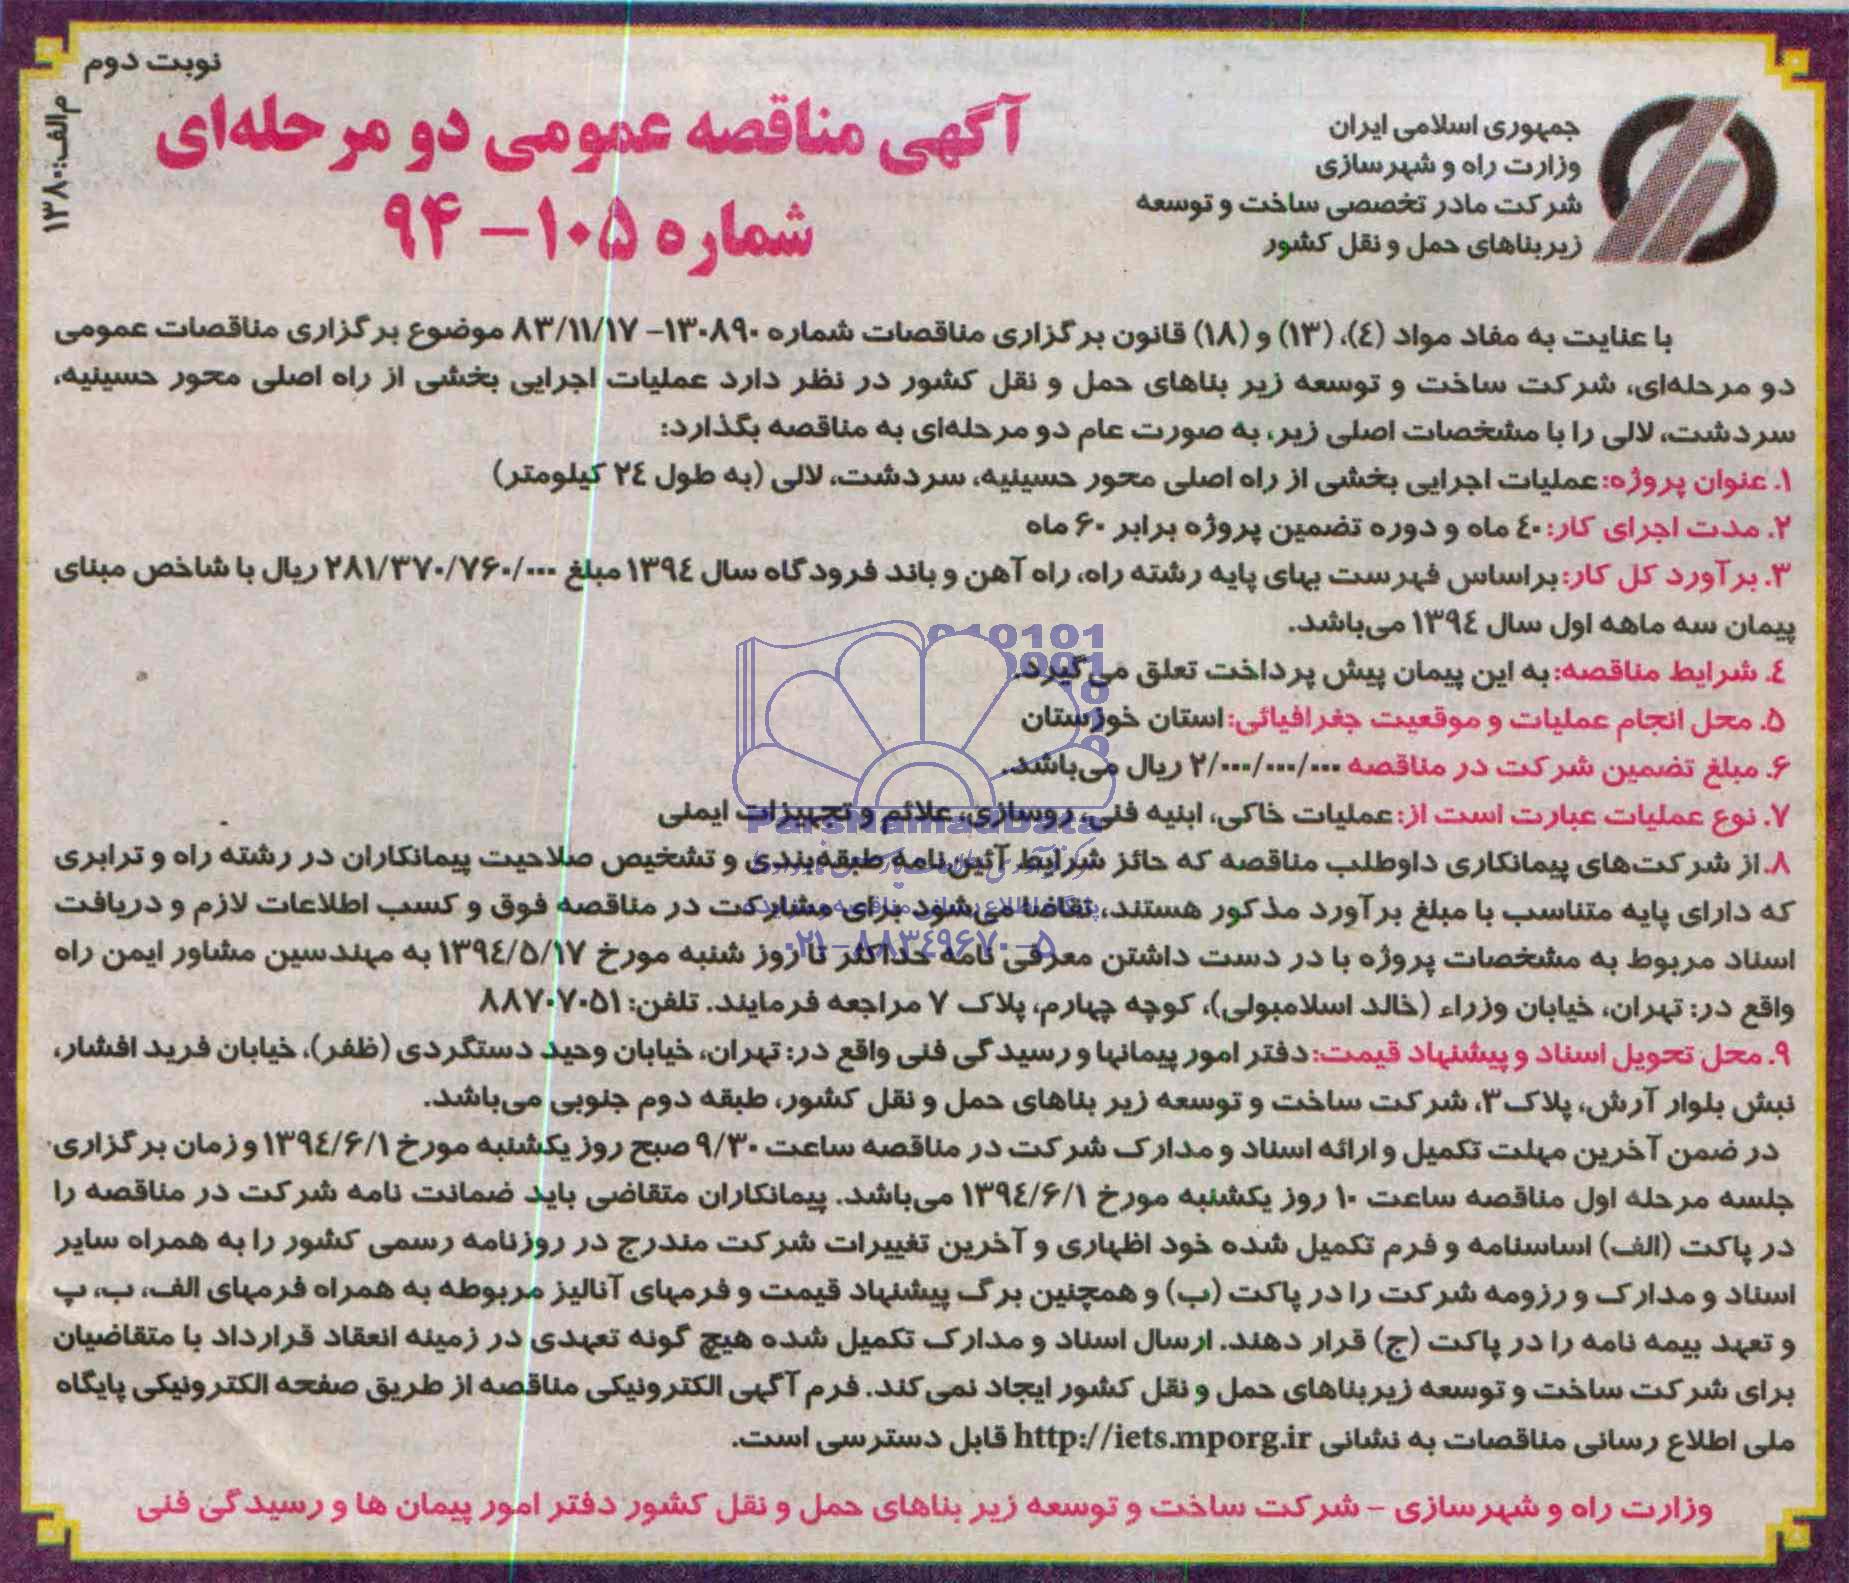 نوبت دوم
م‌الف: ۱۳۸۰
جمهوری اسلامی ایران
وزارت راه و شهرسازی
شرکت مادر تخصصی ساخت و توسعه
زیربناهای حمل و نقل کشور
آگهی مناقصه عمومی دو مرحله‌ای
شماره ۱۰۵ - ۹۴
با عنایت به مفاد مواد (٤)، (۱۳) و (۱۸) قانون برگزاری مناقصات شماره ۱۳۰۸۹۰- ۸۳/۱۱/۱۷ موضوع برگزاری مناقصات عمومی
دو مرحله‌ای، شرکت ساخت و توسعه زیر بناهای حمل و نقل کشور در نظر دارد عملیات اجرایی بخشی از راه اصلی محور حسینیه،
سردشت، لالی را با مشخصات اصلی زیر، به صورت عام دو مرحله‌ای به مناقصه بگذارد:
۱. عنوان پروژه: عملیات اجرایی بخشی از راه اصلی محور حسینیه، سردشت، لالی (به طول ۲٤ کیلومتر)
۲. مدت اجرای کار: ٤۰ ماه و دوره تضمین پروژه برابر ۶۰ ماه
۳. برآورد کل کار: براساس فهرست بهای پایه رشته راه، راه آهن و باند فرودگاه سال ۱۳۹٤ مبلغ ۲۸۱/۳۷۰/۷۶۰/۰۰۰ ریال با شاخص مبنای
پیمان سه ماهه اول سال ۱۳۹٤ می‌باشد.
٤. شرایط مناقصه: به این پیمان پیش پرداخت تعلق می‌گیرد.
۵. محل انجام عملیات و موقعیت جغرافیائی: استان خوزستان
۶. مبلغ تضمین شرکت در مناقصه ۲/۰۰۰/۰۰۰/۰۰۰ ریال می‌باشد.
۷. نوع عملیات عبارت است از: عملیات خاکی، ابنیه فنی، روسازی، علائم و تجهیزات ایمنی
ParsNamadData
۸. از شرکت‌های پیمانکاری داوطلب مناقصه که حائز شرایط آئین‌نامه طبقه‌بندی و تشخیص صلاحیت پیمانکاران در رشته راه و ترابری
که دارای پایه متناسب با مبلغ برآورد مذکور هستند، تقاضا می‌شود برای مشارکت در مناقصه فوق و کسب اطلاعات لازم و دریافت
۰۲۱-۸۸۳٤۹۶۷۰-۵
اسناد مربوط به مشخصات پروژه با در دست داشتن معرفی نامه حداکثر تا روز شنبه مورخ ۱۳۹٤/۵/۱۷ به مهندسین مشاور ایمن راه
واقع در: تهران، خیابان وزراء (خالد اسلامبولی)، کوچه چهارم، پلاک ۷ مراجعه فرمایند. تلفن: ۸۸۷۰۷۰۵۱
۹. محل تحویل اسناد و پیشنهاد قیمت: دفتر امور پیمانها و رسیدگی فنی واقع در: تهران، خیابان وحید دستگردی (ظفر)، خیابان فرید افشار،
نبش بلوار آرش، پلاک۳، شرکت ساخت و توسعه زیر بناهای حمل و نقل کشور، طبقه دوم جنوبی می‌باشد.
در ضمن آخرین مهلت تکمیل و ارائه اسناد و مدارک شرکت در مناقصه ساعت ۹/۳۰ صبح روز یکشنبه مورخ ۱۳۹٤/۶/۱ و زمان برگزاری
جلسه مرحله اول مناقصه ساعت ۱۰ روز یکشنبه مورخ ۱۳۹٤/۶/۱ می‌باشد. پیمانکاران متقاضی باید ضمانت نامه شرکت در مناقصه را
در پاکت (الف) اساسنامه و فرم تکمیل شده خود اظهاری و آخرین تغییرات شرکت مندرج در روزنامه رسمی کشور را به همراه سایر
اسناد و مدارک و رزومه شرکت را در پاکت (ب) و همچنین برگ پیشنهاد قیمت و فرمهای آنالیز مربوطه به همراه فرمهای الف، ب، پ
و تعهد بیمه نامه را در پاکت (ج) قرار دهند. ارسال اسناد و مدارک تکمیل شده هیچ گونه تعهدی در زمینه انعقاد قرارداد با متقاضیان
برای شرکت ساخت و توسعه زیربناهای حمل و نقل کشور ایجاد نمی‌کند. فرم آگهی الکترونیکی مناقصه از طریق صفحه الکترونیکی پایگاه
ملی اطلاع رسانی مناقصات به نشانی http://iets.mporg.ir قابل دسترسی است.
وزارت راه و شهرسازی - شرکت ساخت و توسعه زیر بناهای حمل و نقل کشور دفتر امور پیمان ها و رسیدگی فنی